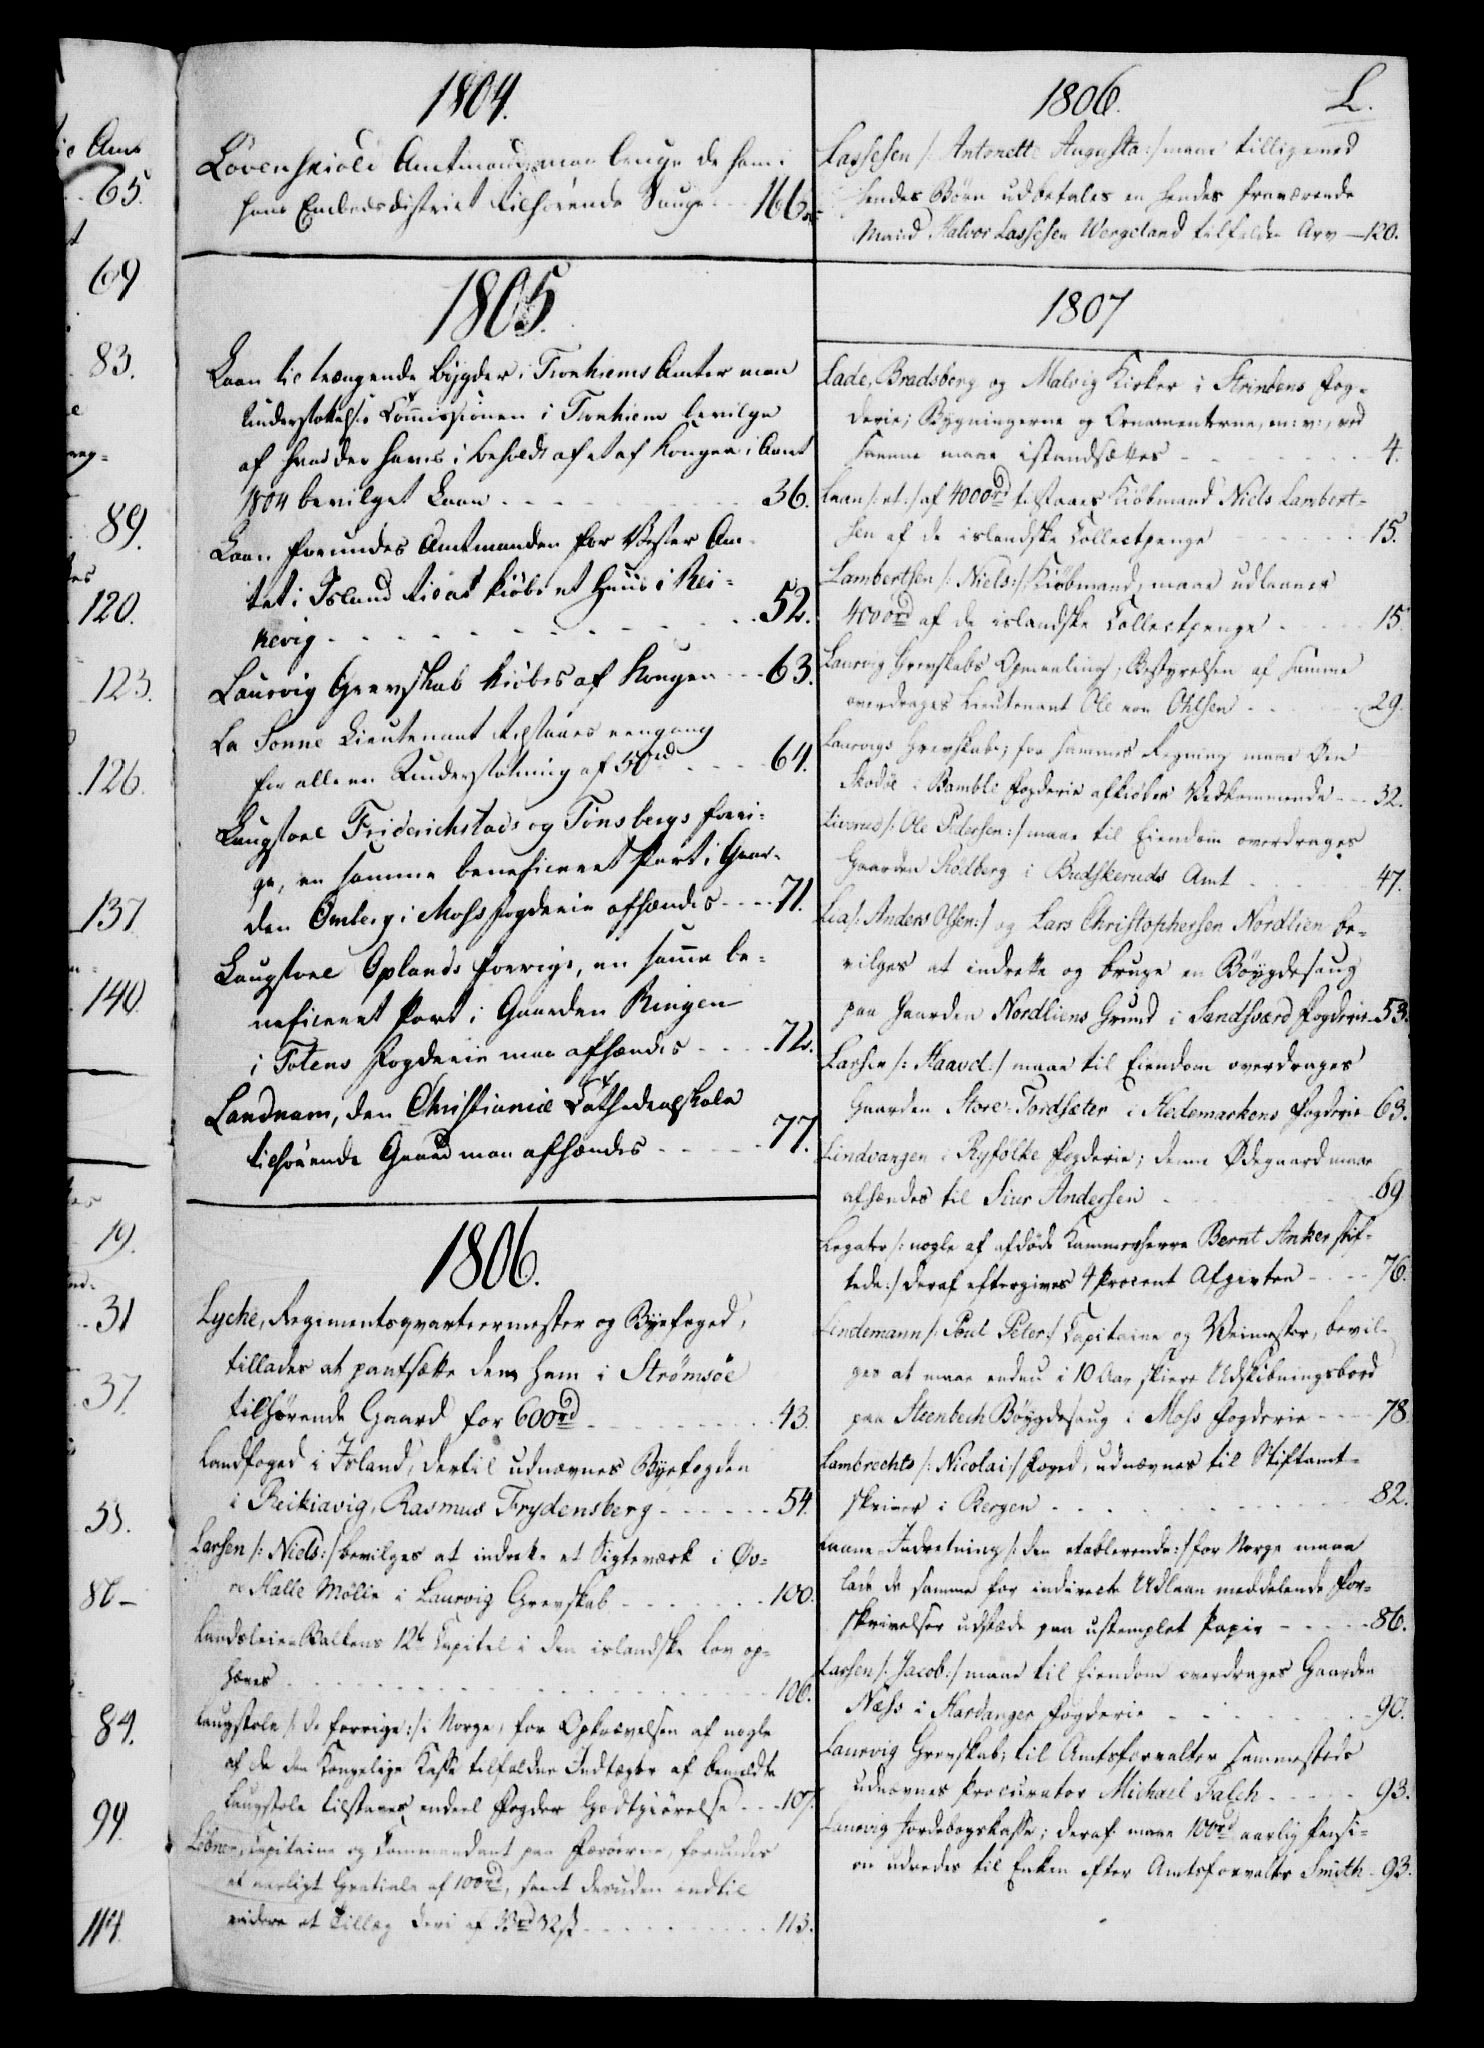 L.
1804.
Lövenskiold Amtmand, maa bruge de ham i
hans Embedsdistrict tilhørende Sauge - - 166.
1805.
Laan til trængende bÿgder i Tronhiems Amter maa
Understøttelses Commissionen i Tronhiem bevilge
af hvad der haves i behold af et af Kongen i Aaret
1804 bevilget Laan - - - 36.
Laan forundes Amtmanden for Vester Am-
tet i Island til at kiöbe et Huus i Rei-
kevig - - - 52.
Laurvig Grevskab kiöbes af Kongen - - 63.
La Sonne Lieutenant tilstaaes eengang
for alle en Understøtning af 50rd - - - 64.
Laugstoel Friderichstads og Tönsbergs forri-
ge, en samme beneficeret Part i Gaar-
den Ombergi Moss fogderie afhændes - - - 71.
Laugstoel Oplands forrige, en samme be-
neficeret Part i Gaarden Ringen
i Totens fogderie maa afhændes - - - 72.
Landnam, den Christianiæ Cathedralskole
tilhørende Gaard maa afhændes - - - 77.
1806.
Lyche, Regimentsqvarteermester og Byefoged,
tillades at pantsætte den ham i Strømsöe
tilhørende Gaard for 600rd - - - 43.
Landfoged i Island, dertil udnævnes Byefogden
i Reikiavig, Rasmus Frydensberg - - - 54.
Larsen /: Niels :/ bevilges at indrette et Sigteværk i Öv-
re Halle Mölle i Laurvig Grevskab - - - 100.
Landsleie-Balkens 12te Capitel i den islandske Lov op-
hæves - - - 106.
Laugstole /: de forrige :/ i Norge, for Opkrævelsen af nogle
af de den Kongelige Kasse tilfaldne Indtægter af bemeldte
Laugstole tilstaaes endeel Fogder Godtgiörelse - - 107.
Löbner, Capitaine og Commandant paa Færöerne, forundes
et aarligt Gratiale af 100rd, samt desuden indtil
videre et Tillæg deri af 33rd 32ß - - - 113.
1806.
Lassesen /: Antonette Augusta :/ maae tilligemed
hendes Börn udbetales en hendes fraværende
Mand Halvor Lassesen Wergeland tilfalden Arv — 120.
1807
Lade, Bradsberg og Malvig Kirker i Strindens fog-
derie; Bygningerne og Ornamenterne, m: v:, ved
samme maae istandsættes - - - 4.
Laan /: et :/ af 4000rd tilstaaes Kiöbmand Niels Lambert-
sen af de islandske Collectpenge - - - 15.
Lambertsen /: Niels :/ Kiöbmand, maae udlaanes
4000rd af de islandske Collectpenge - - - 15.
Laurvig Grevskabs Opmaaling, Bestyrelsen af samme
overdrages Lieutenant Ole von Ohlsen - - - 29.
Laurvigs Grevskab; for sammes Regning maae Öen
Skodöe i Bamble fogderie afkiöbes Vedkommende - - 32.
Livorud /: Ole Pedersen :/ maae til Eiendom overdrages
Gaarden Kölberg i Budskeruds Amt - - - 47.
Lia /: Anders Olsen :/ og Lars Christophersen Nordlien be-
vilges at indrette og bruge en Böygdesaug
paa Gaarden Nordliens Grund i Sandsværd fogderie 53.
Larsen /: Haavel :/ maae til Eiendom overdrages
Gaarden Store-Tordsæter i Hedemarkens fogderie 63.
Lindvangen i Ryfölke fogderie; denne Ødegaard maae
afhændes til Siur Andersen - - - 69
Legater /: nogle af afdöde Kammerherre Bernt Anker stif-
tede :/ deraf eftergives 4 Procent Afgivten - - - 76.
Lindemann /: Poul Peter :/ Capitaine og Veimester, bevil-
ges at maae endnu i 10 Aar skiære Udskibningsbord
paa Steenbech Böygdesaug i Moss fogderie - - - 78.
Lambrechts /: Nicolai :/ foged, udnævnes til Stiftamt-
skriver i Bergen - - - 82.
Laane-Indretning /: den etablerende :/ for Norge maae
lade de samme for indirecte Udlaan meddelende For-
skrivelser udstæde paa ustemplet Papir - - - 86.
Larsen /: Jacob :/ maae til Eiendom overdrages Gaarden
Næss i Hardanger fogderie - - - 90.
Laurvig Grevskab; til Amtsforvalter sammesteds
udnævnes Procurator Michael Falch - - - 93.
Laurvig Jordebogskasse; deraf maae 100rd aarlig Pensi-
on udredes til Enken efter Amtsforvalter Smith - 93.
Amt
65.
69
83.
89.
120.
123.
126.
137
140.
19.
31
37.
55.
86 -
84.
99.
114.